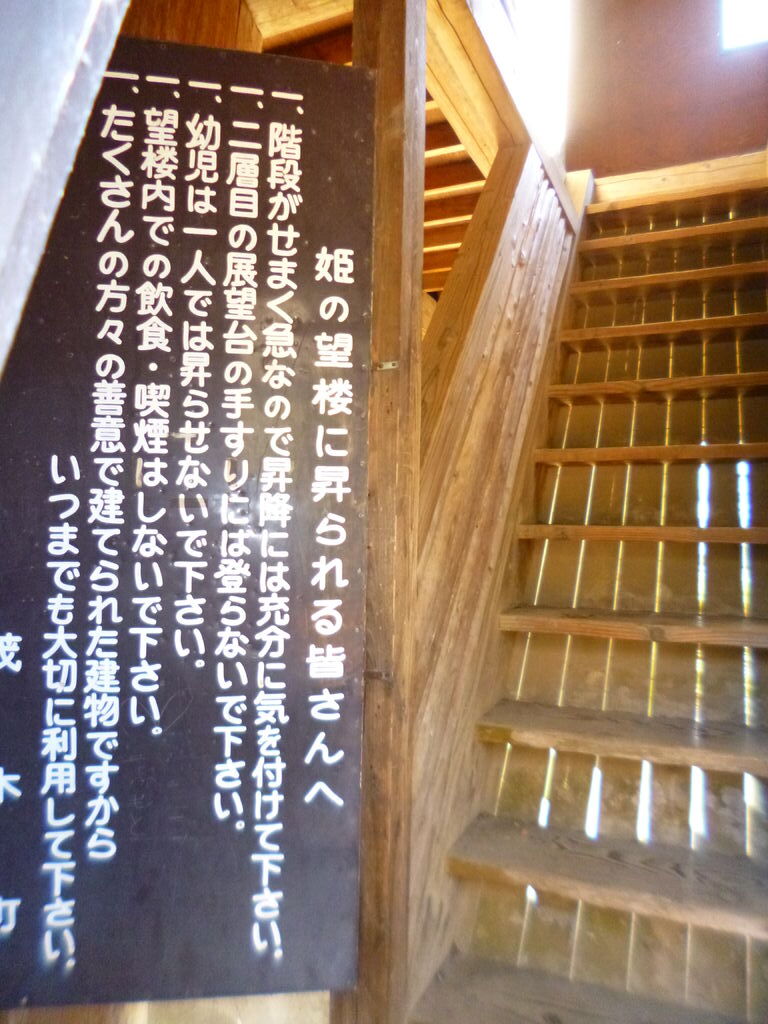 姫の望楼に昇られる皆さんへ
一、階段がせまく急なので昇降には充分に気を付けて下さい。
一、二層目の展望台の手すりには登らないで下さい。
一、幼児は一人では昇らせないで下さい。
一、望楼内での飲食・喫煙はしないで下さい。
一、たくさんの方々の善意で建てられた建物ですから
いつまでも大切に利用して下さい。
茂木町